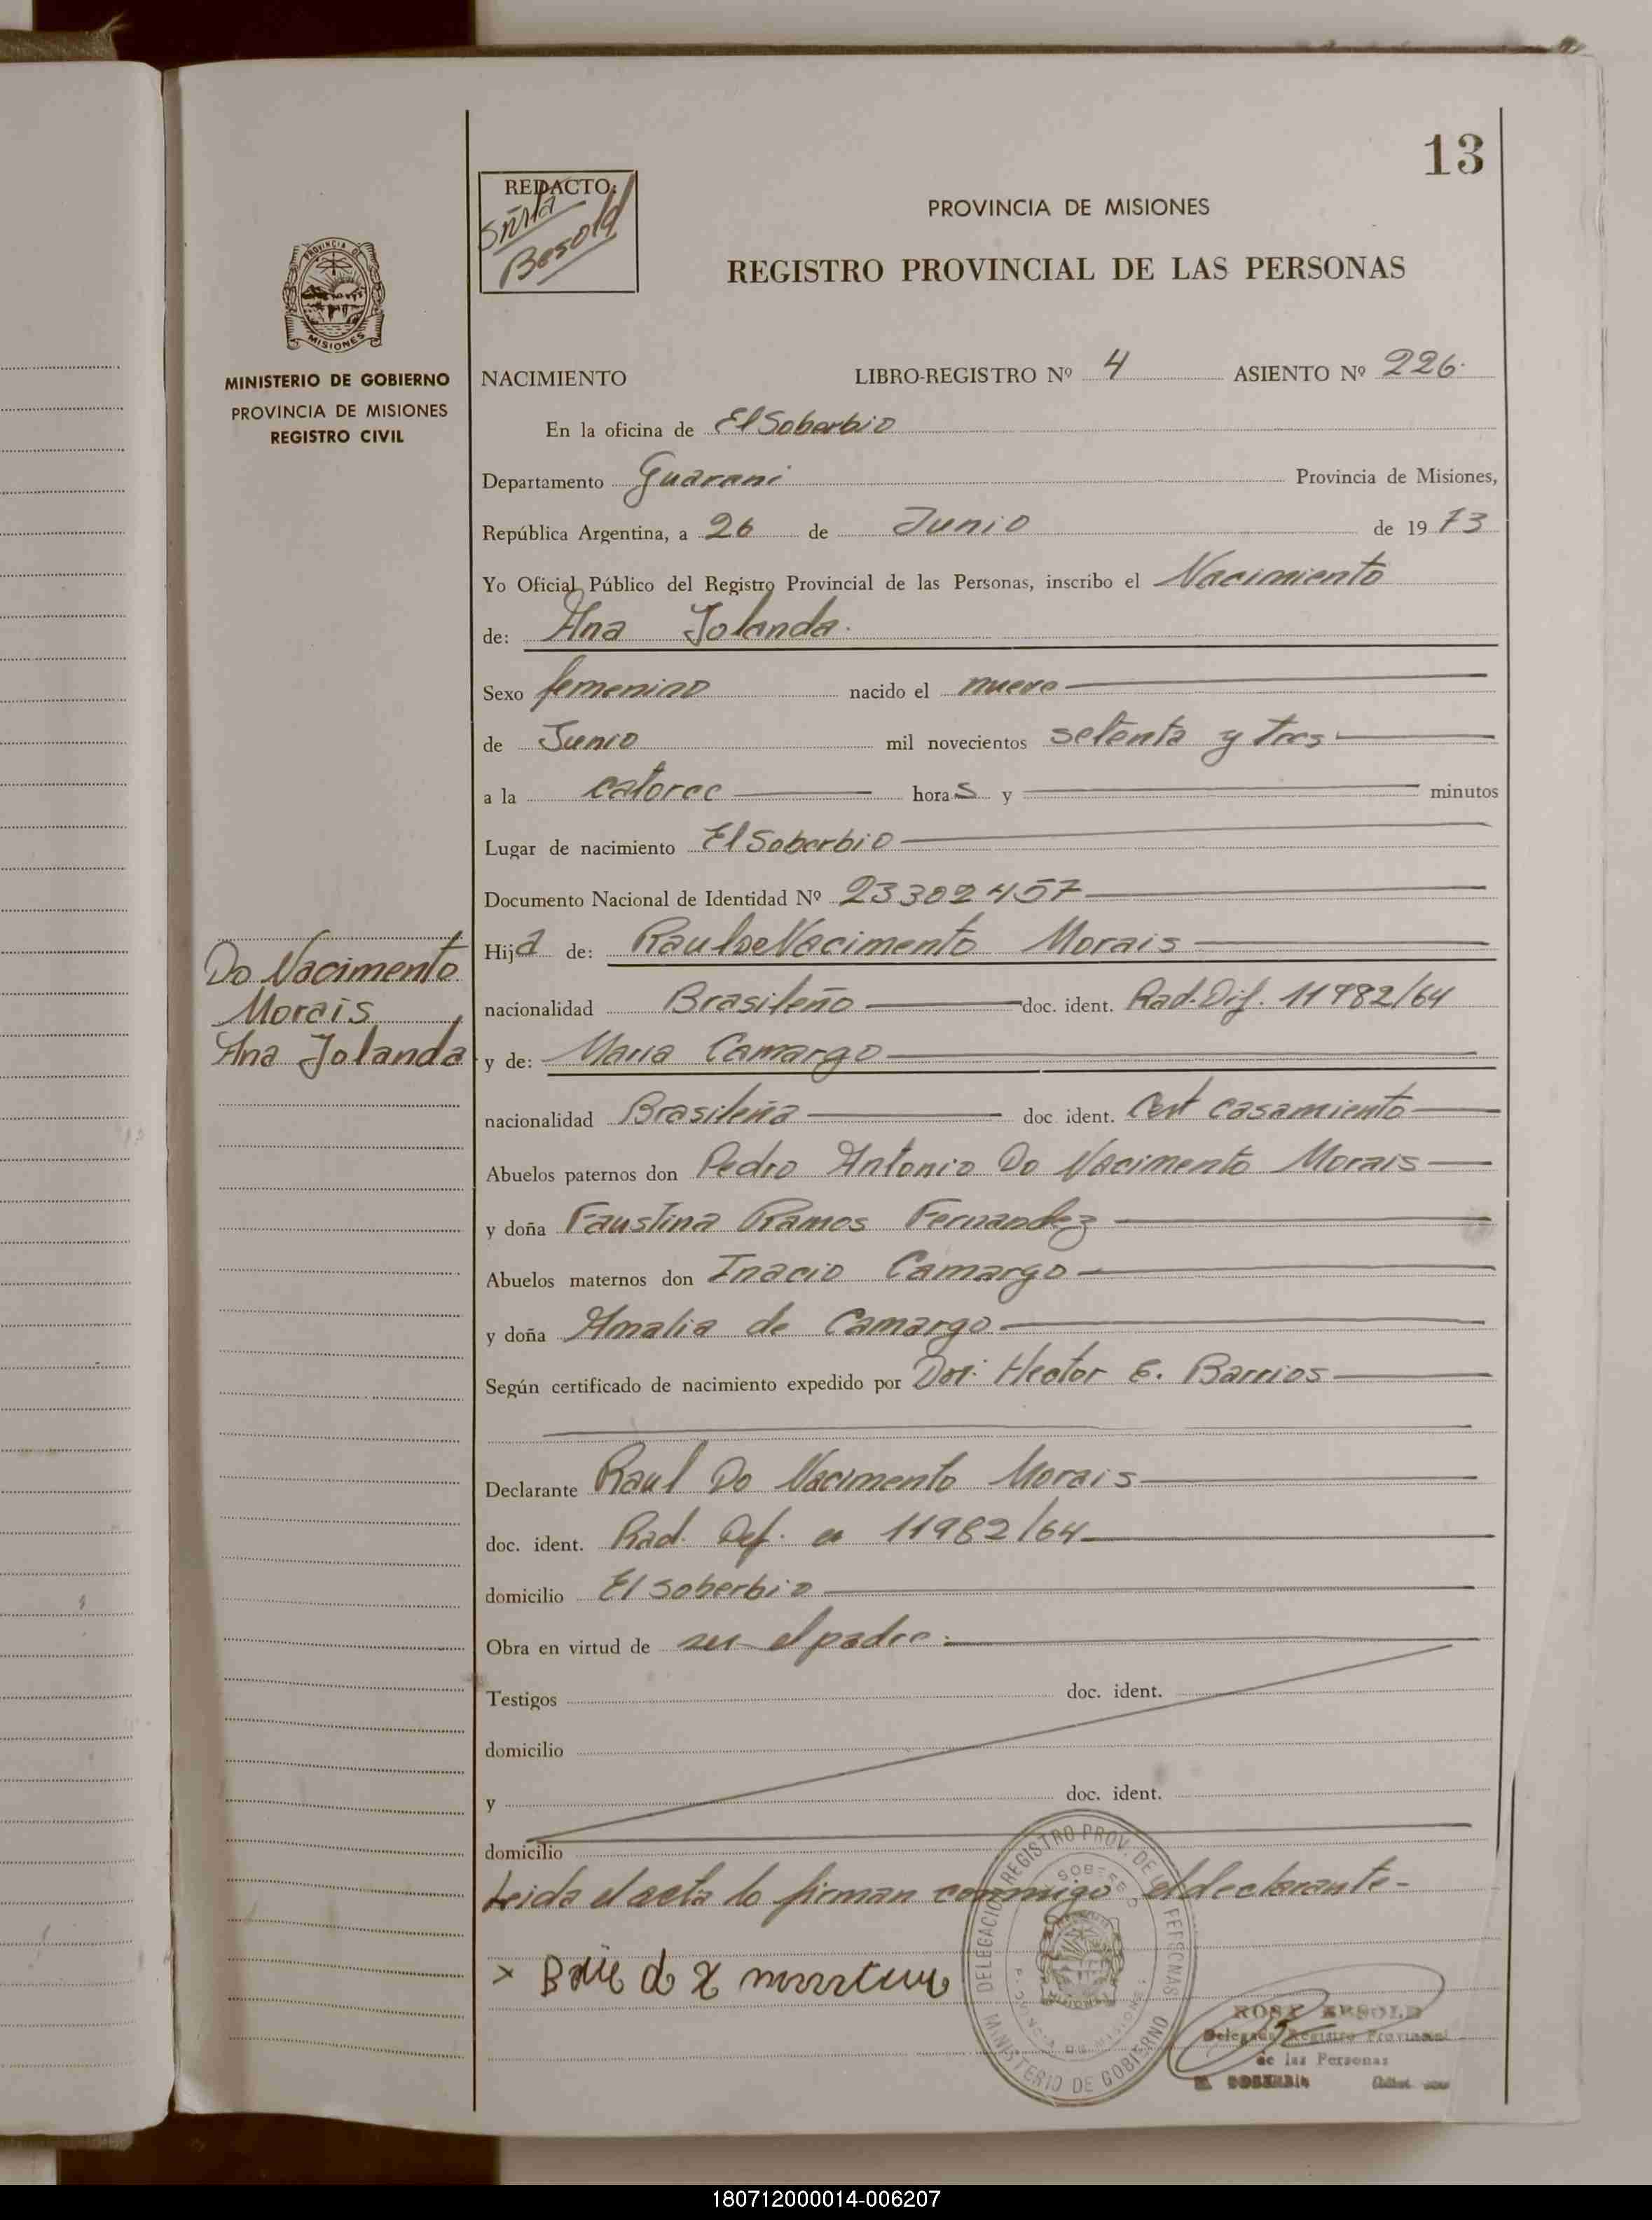 13
REDACTO:
Sñrta
Besold
PROVINCIA DE MISIONES
REGISTRO PROVINCIAL DE LAS PERSONAS
PROVINCIA DE
MISIONES
MINISTERIO DE GOBIERNO
PROVINCIA DE MISIONES
REGISTRO CIVIL
NACIMIENTO LIBRO-REGISTRO Nº 4 ASIENTO Nº 226.
En la oficina de El Soberbio
Departamento Guarani Provincia de Misiones,
República Argentina, a 26 de Junio de 1973
Yo Oficial Público del Registro Provincial de las Personas, inscribo el Nacimiento
de: Ana Jolanda.
Sexo femenino nacido el nueve
de Junio mil novecientos setenta y tres
a la catorce horas y minutos
Lugar de nacimiento El Soberbio
Documento Nacional de Identidad Nº 23302457
Hija de: Raul Do Nacimento Morais
Do Nacimento
Morais
Ana Jolanda
nacionalidad Brasileño doc. ident. Rad. Dif. 11982/64
y de: Maria Camargo
nacionalidad Brasileña doc ident. Cert casamiento
Abuelos paternos don Pedro Antonio Do Nacimento Morais
y doña Faustina Ramos Fernandez
Abuelos maternos don Inacio Camargo
y doña Amalia de Camargo
Según certificado de nacimiento expedido por Dor. Hector E. Barrios
Declarante Raul Do Nacimento Morais
doc. ident. Rad. Def. 11982/64
domicilio El Soberbio
Obra en virtud de ser el padre.
Testigos doc. ident.
domicilio
y doc. ident.
domicilio
Leida el acta lo firman conmigo el declarante-
DELEGACION REGISTRO PROV. DE PERSONAS
MINISTERIO DE GOBIERNO
Delegada Registro Provincial
de las Personas
180712000014-006207